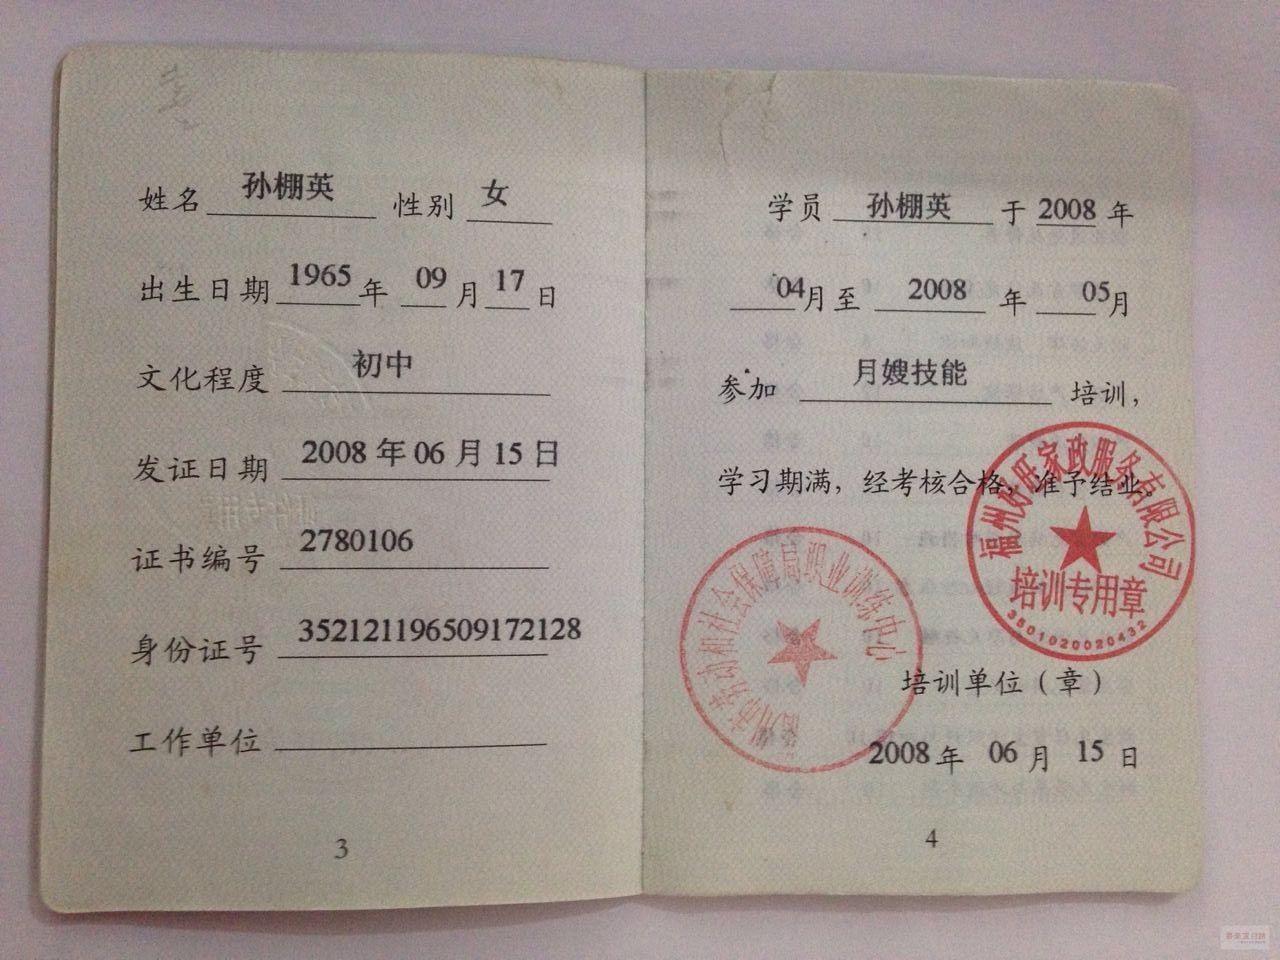 姓名 孙棚英 性别 女
出生日期 1965年 09月17日
文化程度 初中
发证日期 2008年06月15日
证书编号 2780106
身份证号 352121196509172128
工作单位
3
学员 孙棚英 于 2008年
04月至 2008年 05月
参加 月嫂技能 培训，
学习期满，经考核合格，准予结业。
福州好旺家政服务有限公司
培训专用章
3501020020432
福州市劳动和社会保障局职业训练中心
培训单位（章）
2008年 06月 15日
4